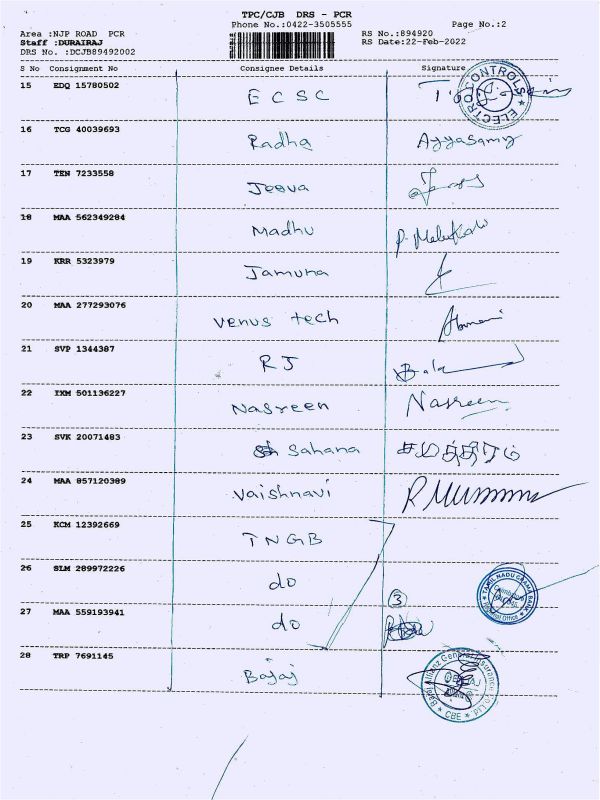 TPC/CJB DRS - PCR
Phone No.:0422-3505555 Page No.:2
Area :NJP ROAD PCR RS No.:894920
Staff :DURAIRAJ RS Date:22-Feb-2022
DRS No. :DCJB89492002
S No Consignment No Consignee Details Signature
15 EDQ 15780502 E C S C
ELECTRO CONTROLS
16 TCG 40039693 Radha Ayyasamy
17 TEN 7233558 Jeeva
18 MAA 562349284 Madhu
19 KRR 5323979 Jamuna
20 MAA 277293076 Venus tech
21 SVP 1344387 RJ Bala
22 IXM 501136227 Nasreen Nasreen
23 SVK 20071483 Sahana
24 MAA 857120389 Vaishnavi
25 KCM 12392669 TNGB
26 SLM 289972226 do
TAMIL NADU GRAMA BANK
Regional Office
27 MAA 559193941 do 3
28 TRP 7691145 Bajaj
Bajaj Allianz General Insurance
CBE